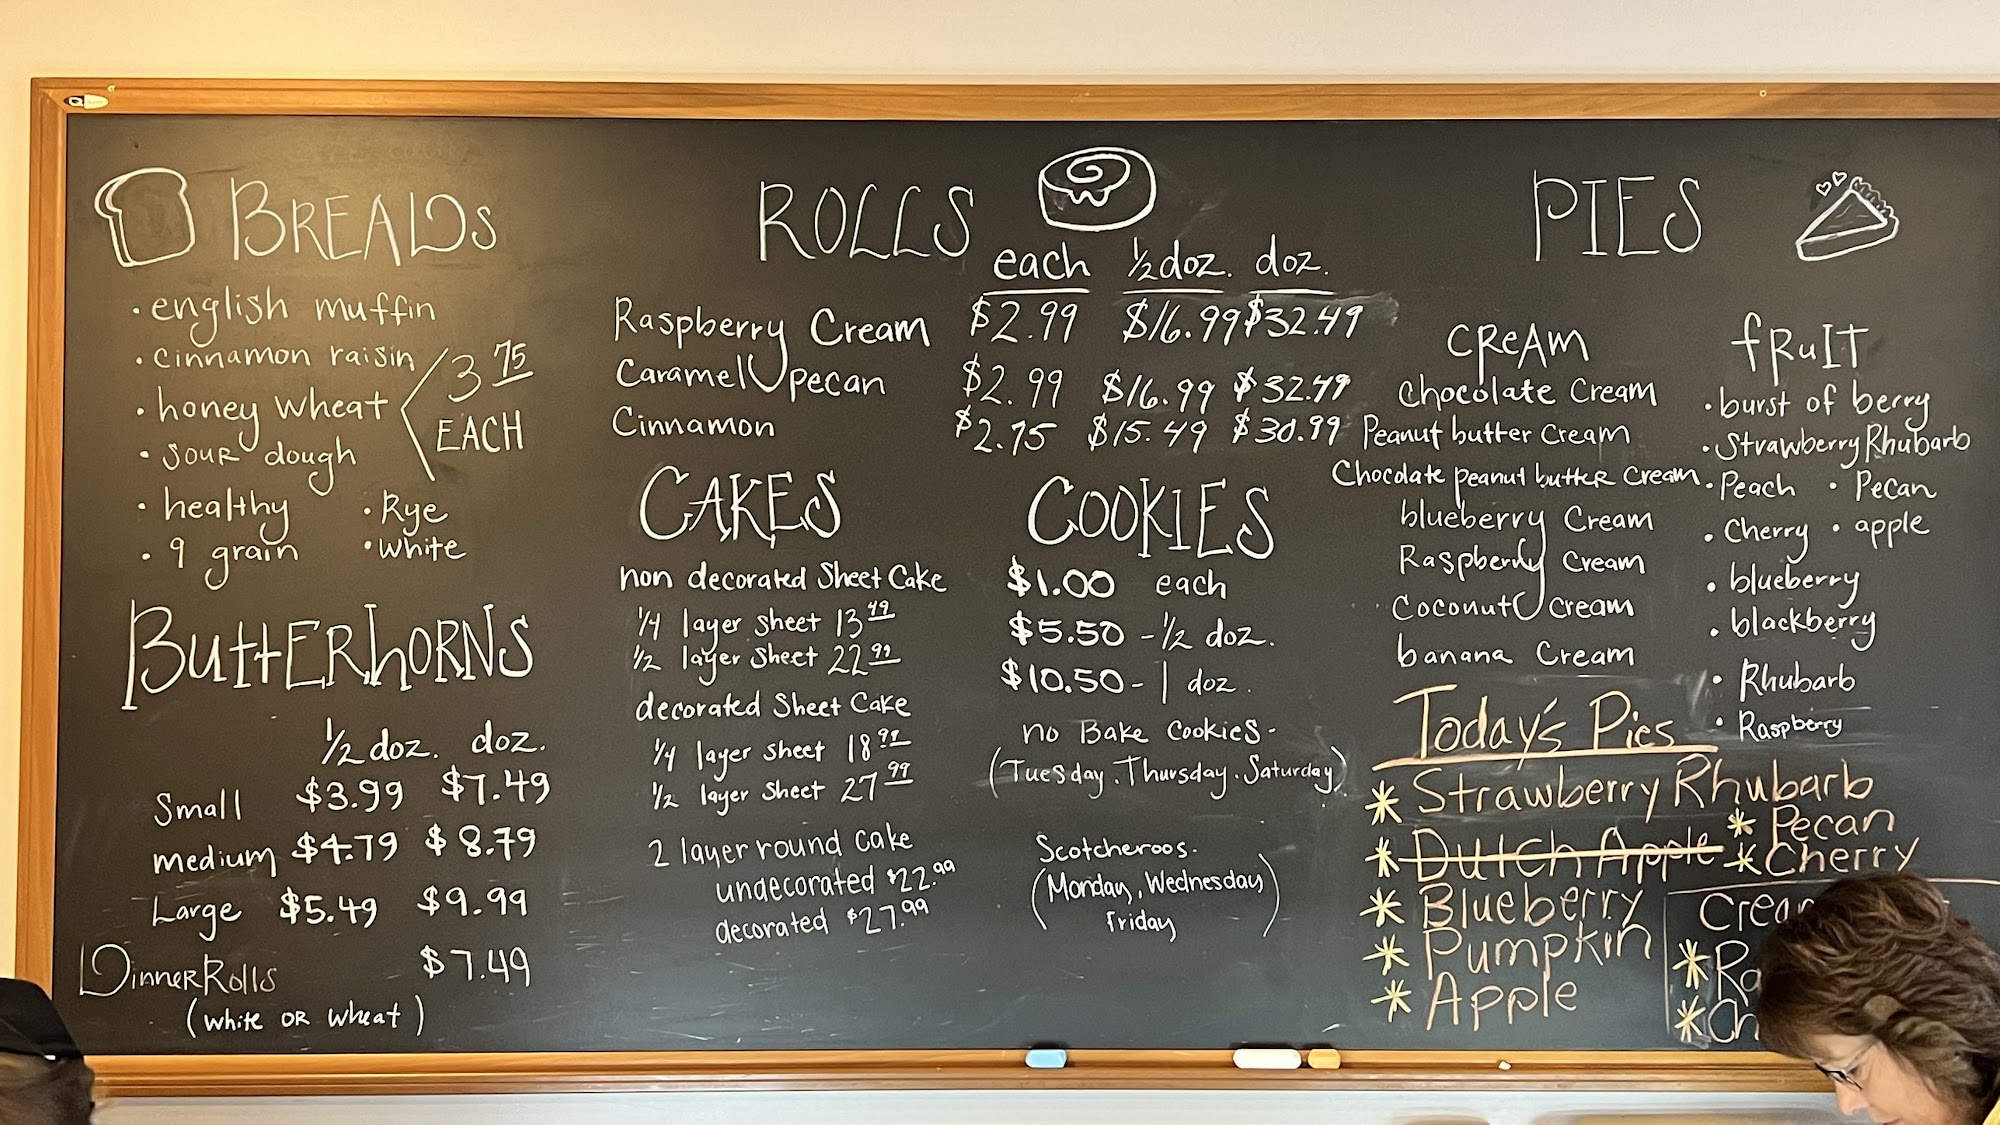 BREADS
• english muffin
• cinnamon raisin
• honey wheat
• sour dough
• healthy
• 9 grain
• Rye
• white
3 75
EACH
ButtERhORNS
1/2 doz. doz.
Small $3.99 $7.49
medium $4.79 $8.79
Large $5.49 $9.99
DinnerRolls $7.49
(white or wheat)
ROLLS
each 1/2 doz. doz.
Raspberry Cream $2.99 $16.99 $32.49
Caramel pecan $2.99 $16.99 $32.49
Cinnamon $2.75 $15.49 $30.99
CAKES
non decorated Sheet Cake
1/4 layer sheet 13 49
1/2 layer sheet 22 99
decorated Sheet Cake
1/4 layer sheet 18 99
1/2 layer sheet 27 99
2 layer round cake
undecorated $22.99
decorated $27.99
COOKIES
$1.00 each
$5.50 - 1/2 doz.
$10.50 - 1 doz.
no Bake Cookies -
(Tuesday. Thursday. Saturday)
Scotcheroos.
(Monday, Wednesday
Friday)
PIES
CReAm
Chocolate Cream
Peanut butter Cream
Chocolate peanut butter Cream
blueberry Cream
Raspberry Cream
Coconut Cream
banana Cream
fRuIT
• burst of berry
• Strawberry Rhubarb
• Peach • Pecan
• Cherry • apple
• blueberry
• blackberry
• Rhubarb
• Raspberry
Today's Pies
* Strawberry Rhubarb
* Dutch Apple
* Blueberry
* Pumpkin
* Apple
* Pecan
* Cherry